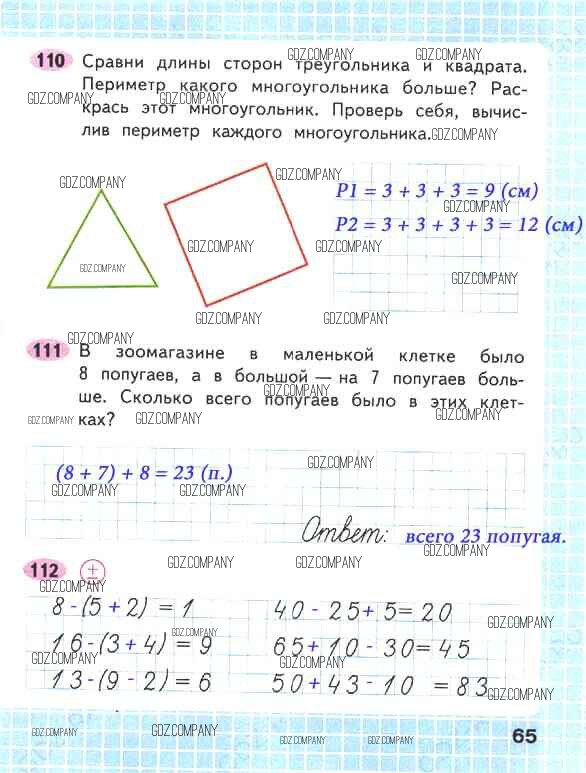 110 Сравни длины сторон треугольника и квадрата.
Периметр какого многоугольника больше? Рас-
крась этот многоугольник. Проверь себя, вычис-
лив периметр каждого многоугольника.
GDZ.COMPANY GDZ.COMPANY
GDZ.COMPANY GDZ.COMPANY
GDZ.COMPANY
GDZ.COMPANY GDZ.COMPANY
P1 = 3 + 3 + 3 = 9 (см)
GDZ.COMPANY
P2 = 3 + 3 + 3 + 3 = 12 (см)
GDZ.COMPANY GDZ.COMPANY
GDZ.COMPANY GDZ.COMPANY
GDZ.COMPANY GDZ.COMPANY
GDZ.COMPANY
111 В зоомагазине в маленькой клетке было
8 попугаев, а в большой — на 7 попугаев боль-
ше. Сколько всего попугаев было в этих клет-
ках?
GDZ.COMPANY
GDZ.COMPANY GDZ.COMPANY GDZ.COMPANY
GDZ.COMPANY
(8 + 7) + 8 = 23 (п.)
GDZ.COMPANY GDZ.COMPANY
Ответ: всего 23 попугая.
GDZ.COMPANY
112 ±
GDZ.COMPANY GDZ.COMPANY
GDZ.COMPANY
8 - (5 + 2) = 1 40 - 25 + 5 = 20
GDZ.COMPANY
GDZ.COMPANY
16 - (3 + 4) = 9 65 + 10 - 30 = 45
GDZ.COMPANY GDZ.COMPANY
13 - (9 - 2) = 6 50 + 43 - 10 = 83
GDZ.COMPANY
GDZ.COMPANY GDZ.COMPANY GDZ.COMPANY GDZ.COMPANY
65